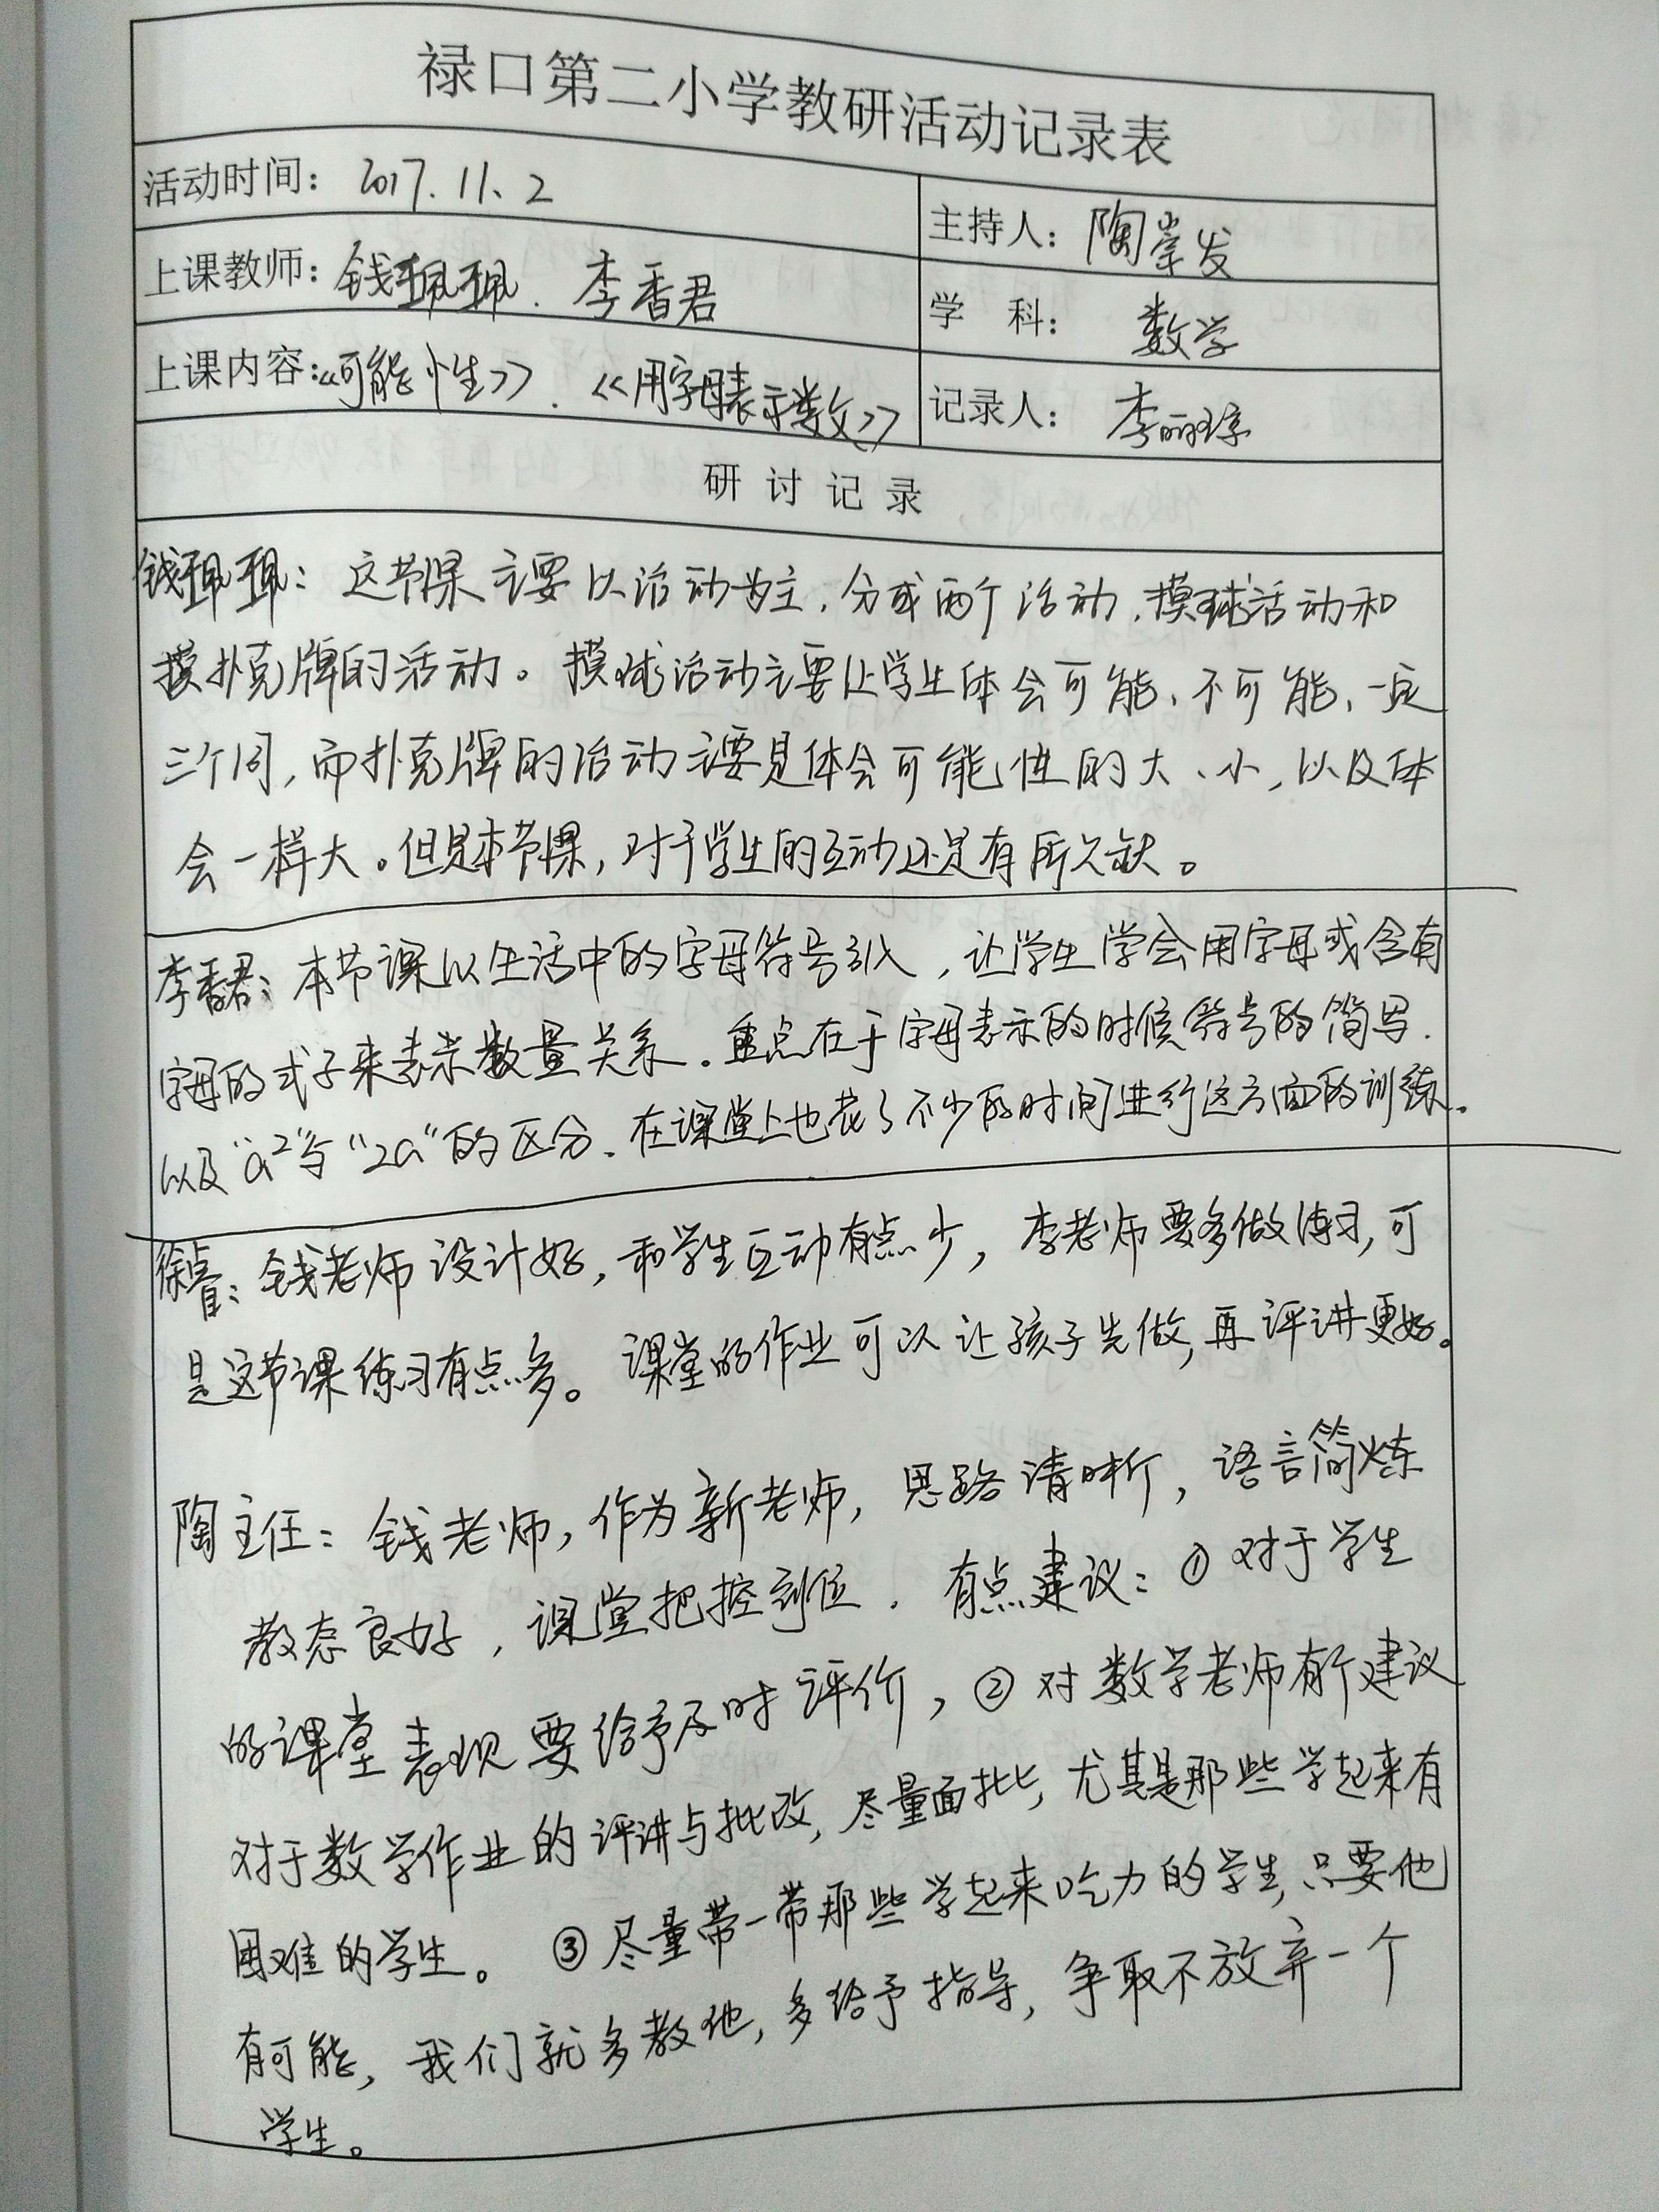 禄口第二小学教研活动记录表
活动时间： 2017.11、2
主持人： 陶掌发
上课教师：钱珮珮. 李香君
学 科： 数学
上课内容：《可能性》. 《用字母表示数》
记录人： 李丽琼
研讨记录
钱珮珮：这节课主要以活动为主，分成两个活动，摸球活动和
摸扑克牌的活动。摸球活动主要让学生体会可能、不可能、一定
三个词，而扑克牌的活动主要是体会可能性的大、小，以及体
会一样大。但是本节课，对于学生的互动还是有所欠缺。
李香君：本节课以生活中的字母符号引入，让学生学会用字母或含有
字母的式子来表示数量关系.重点在于字母表示的时候符号的简写.
以及“a²”与“2a”的区分.在课堂上也花了不少的时间进行这方面的训练.
徐睿：钱老师设计好，和学生互动有点少，李老师要多做练习，可
是这节课练习有点多。课堂的作业可以让孩子先做，再评讲更好。
陶主任：钱老师，作为新老师，思路清晰，语言简炼
教态良好，课堂把控到位. 有点建议：①对于学生
的课堂表现要给予及时评价，②对数学老师有个建议
对于数学作业的评讲与批改，尽量面批，尤其是那些学起来有
困难的学生。 ③尽量带一带那些学起来吃力的学生，只要他
有可能，我们就多教他，多给予指导，争取不放弃一个
学生。